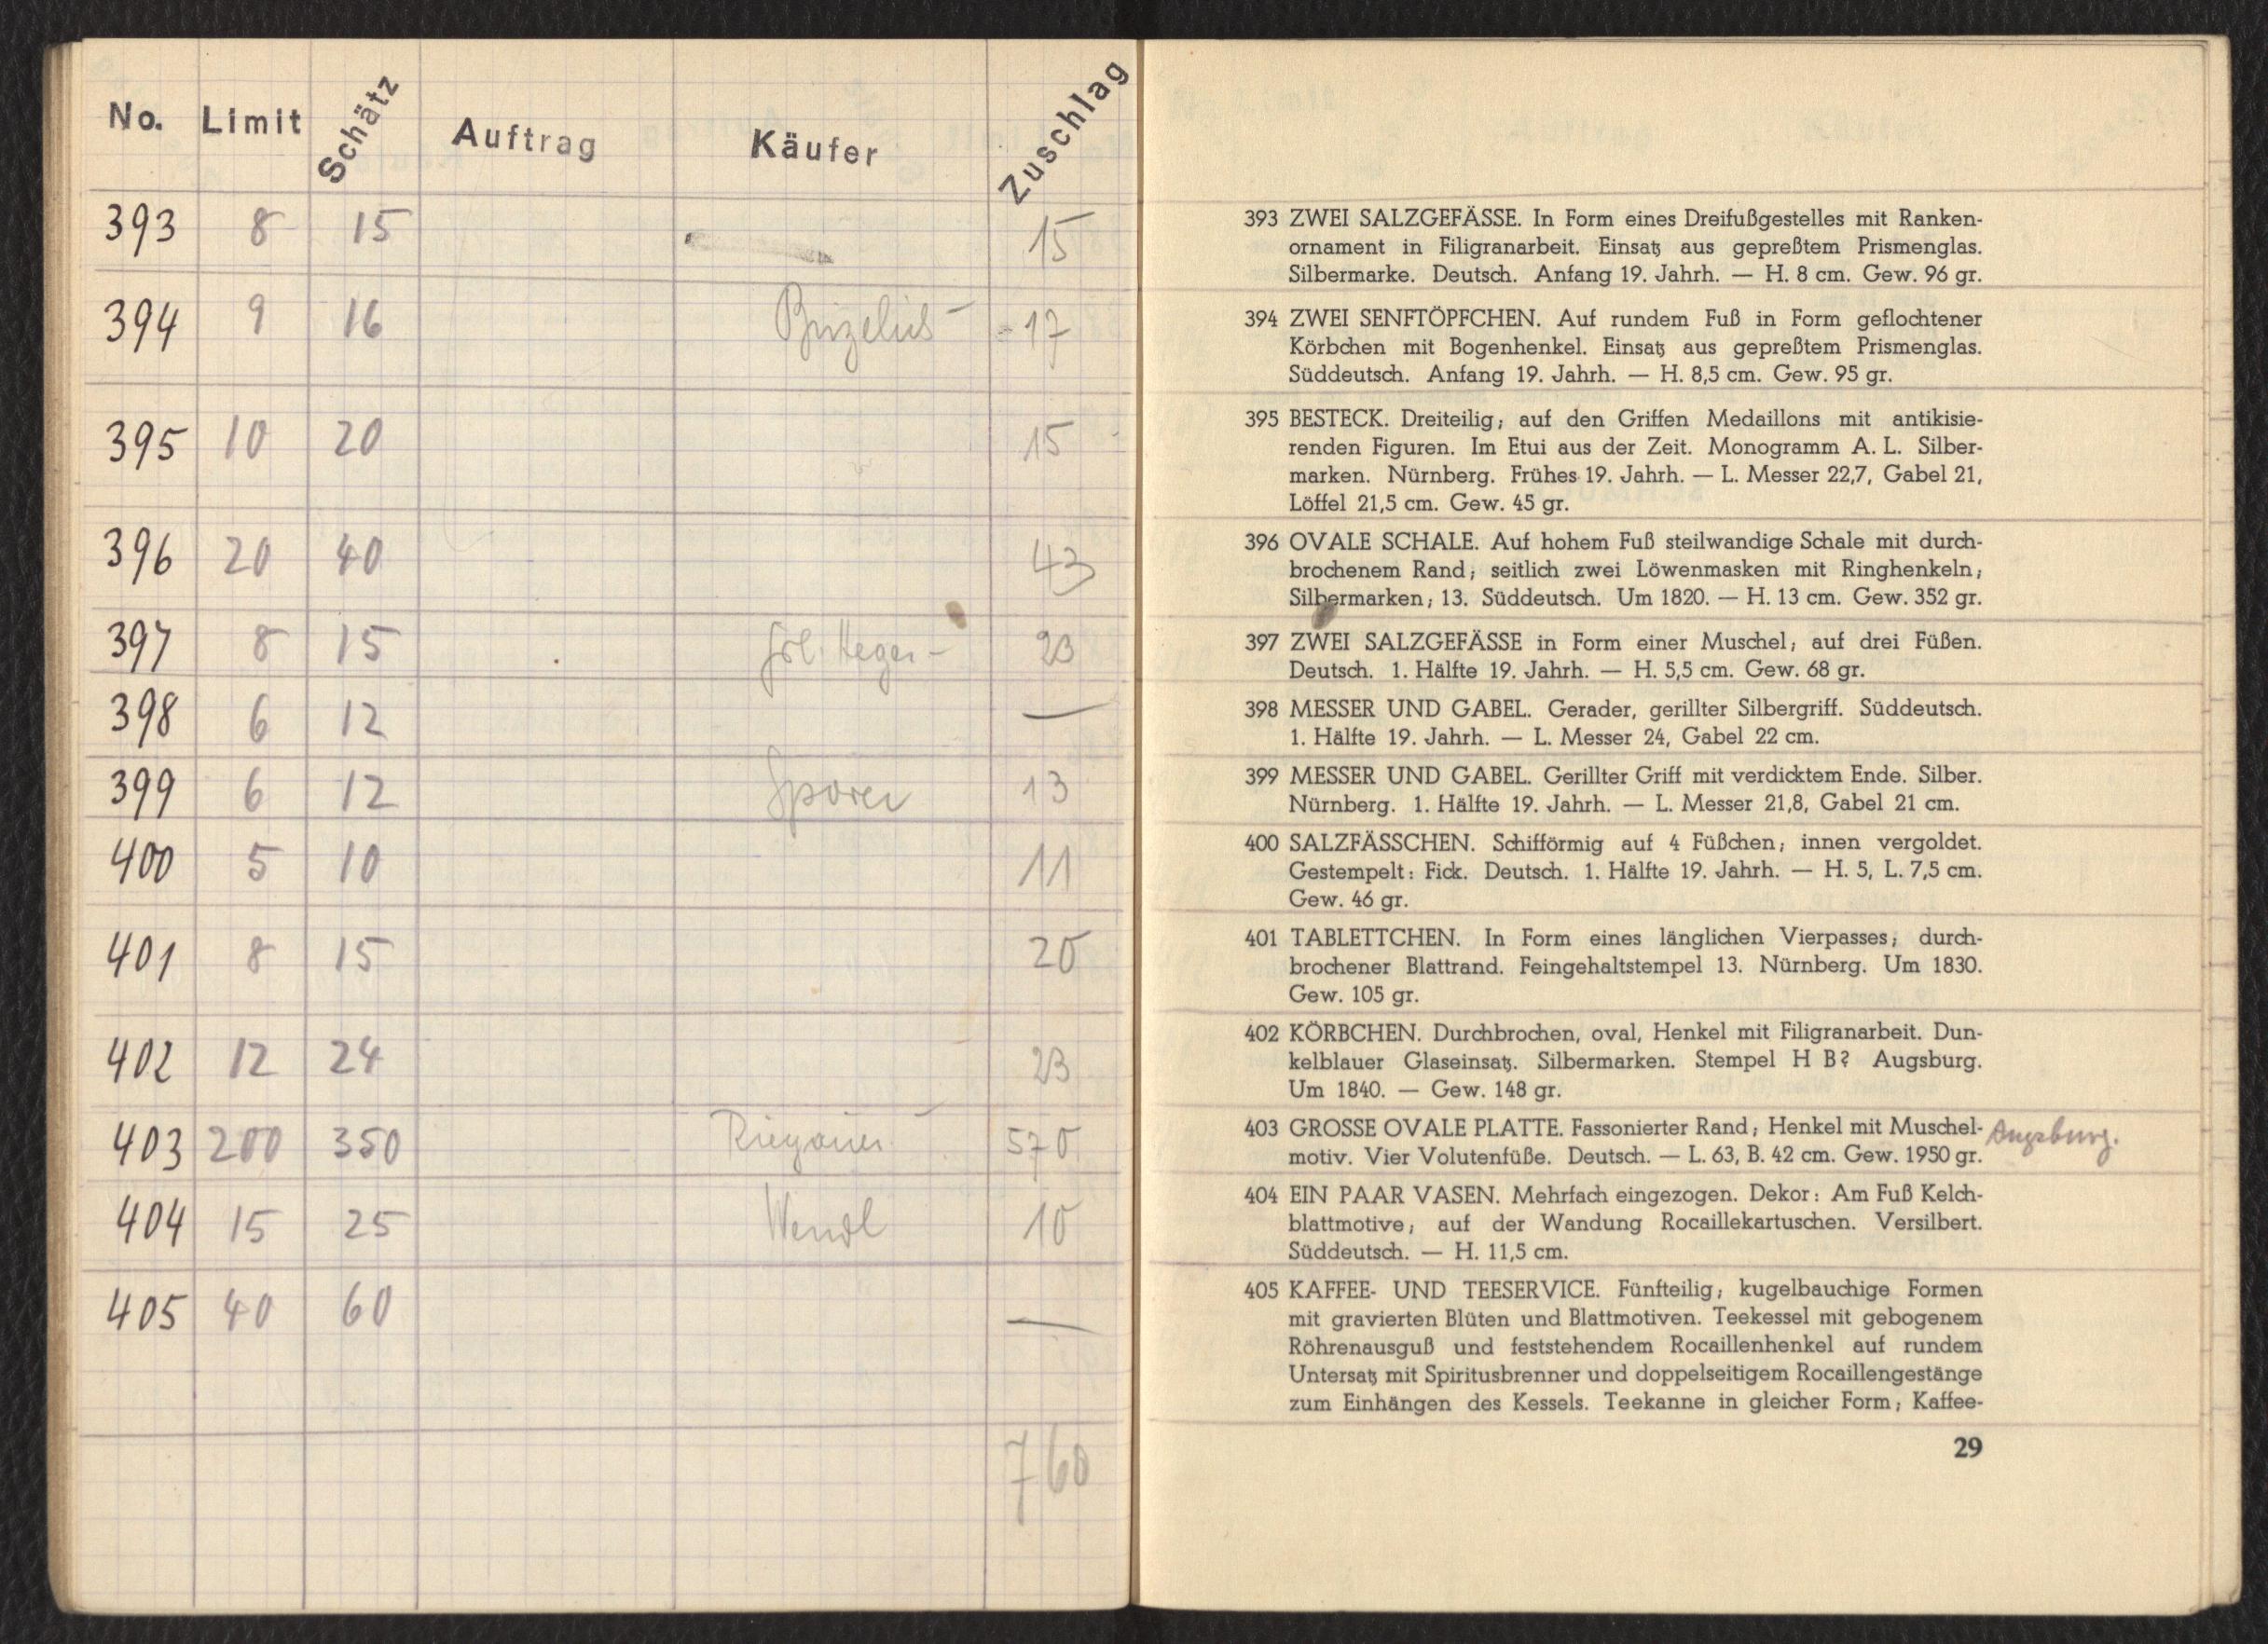 No. Limit Schätz Auftrag Käufer Zuschlag
393 8 15 15
394 9 16 17
395 10 20 15
396 20 40 43
397 8 15 Frl. Heger - 23
398 6 12 —
399 6 12 Sporer 13
400 5 10 11
401 8 15 20
402 12 24 23
403 200 350 570
404 15 25 Wendl 10
405 40 60 —
760
393 ZWEI SALZGEFÄSSE. In Form eines Dreifußgestelles mit Ranken-
ornament in Filigranarbeit. Einsatz aus gepreßtem Prismenglas.
Silbermarke. Deutsch. Anfang 19. Jahrh. — H. 8 cm. Gew. 96 gr.
394 ZWEI SENFTÖPFCHEN. Auf rundem Fuß in Form geflochtener
Körbchen mit Bogenhenkel. Einsatz aus gepreßtem Prismenglas.
Süddeutsch. Anfang 19. Jahrh. — H. 8,5 cm. Gew. 95 gr.
395 BESTECK. Dreiteilig; auf den Griffen Medaillons mit antikisie-
renden Figuren. Im Etui aus der Zeit. Monogramm A. L. Silber-
marken. Nürnberg. Frühes 19. Jahrh. — L. Messer 22,7, Gabel 21,
Löffel 21,5 cm. Gew. 45 gr.
396 OVALE SCHALE. Auf hohem Fuß steilwandige Schale mit durch-
brochenem Rand; seitlich zwei Löwenmasken mit Ringhenkeln;
Silbermarken; 13. Süddeutsch. Um 1820. — H. 13 cm. Gew. 352 gr.
397 ZWEI SALZGEFÄSSE in Form einer Muschel; auf drei Füßen.
Deutsch. 1. Hälfte 19. Jahrh. — H. 5,5 cm. Gew. 68 gr.
398 MESSER UND GABEL. Gerader, gerillter Silbergriff. Süddeutsch.
1. Hälfte 19. Jahrh. — L. Messer 24, Gabel 22 cm.
399 MESSER UND GABEL. Gerillter Griff mit verdicktem Ende. Silber.
Nürnberg. 1. Hälfte 19. Jahrh. — L. Messer 21,8, Gabel 21 cm.
400 SALZFÄSSCHEN. Schifförmig auf 4 Füßchen; innen vergoldet.
Gestempelt: Fick. Deutsch. 1. Hälfte 19. Jahrh. — H. 5, L. 7,5 cm.
Gew. 46 gr.
401 TABLETTCHEN. In Form eines länglichen Vierpasses; durch-
brochener Blattrand. Feingehaltstempel 13. Nürnberg. Um 1830.
Gew. 105 gr.
402 KÖRBCHEN. Durchbrochen, oval, Henkel mit Filigranarbeit. Dun-
kelblauer Glaseinsatz. Silbermarken. Stempel H B? Augsburg.
Um 1840. — Gew. 148 gr.
403 GROSSE OVALE PLATTE. Fassonierter Rand; Henkel mit Muschel- Augsburg.
motiv. Vier Volutenfüße. Deutsch. — L. 63, B. 42 cm. Gew. 1950 gr.
404 EIN PAAR VASEN. Mehrfach eingezogen. Dekor: Am Fuß Kelch-
blattmotive; auf der Wandung Rocaillekartuschen. Versilbert.
Süddeutsch. — H. 11,5 cm.
405 KAFFEE- UND TEESERVICE. Fünfteilig; kugelbauchige Formen
mit gravierten Blüten und Blattmotiven. Teekessel mit gebogenem
Röhrenausguß und feststehendem Rocaillenhenkel auf rundem
Untersatz mit Spiritusbrenner und doppelseitigem Rocaillengestänge
zum Einhängen des Kessels. Teekanne in gleicher Form; Kaffee-
29